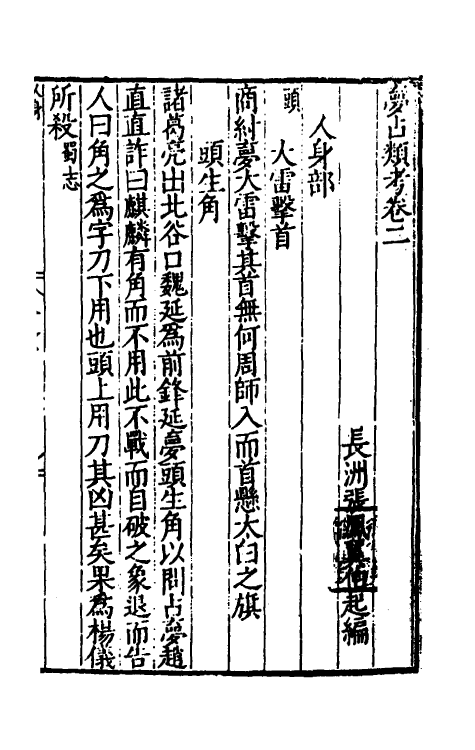 夢占類考卷二
長洲張起編
人身部
頭
大雷擊首
商紂夢大雷擊其首無何周師入而首懸太白之旗
頭生角
諸葛亮出北谷口魏延爲前鋒延夢頭生角以問占夢趙
直直詐曰麒麟有角而不用此不戰而自破之象退而告
人曰角之爲字刀下用也頭上用刀其凶甚矣果爲楊儀
所殺蜀志